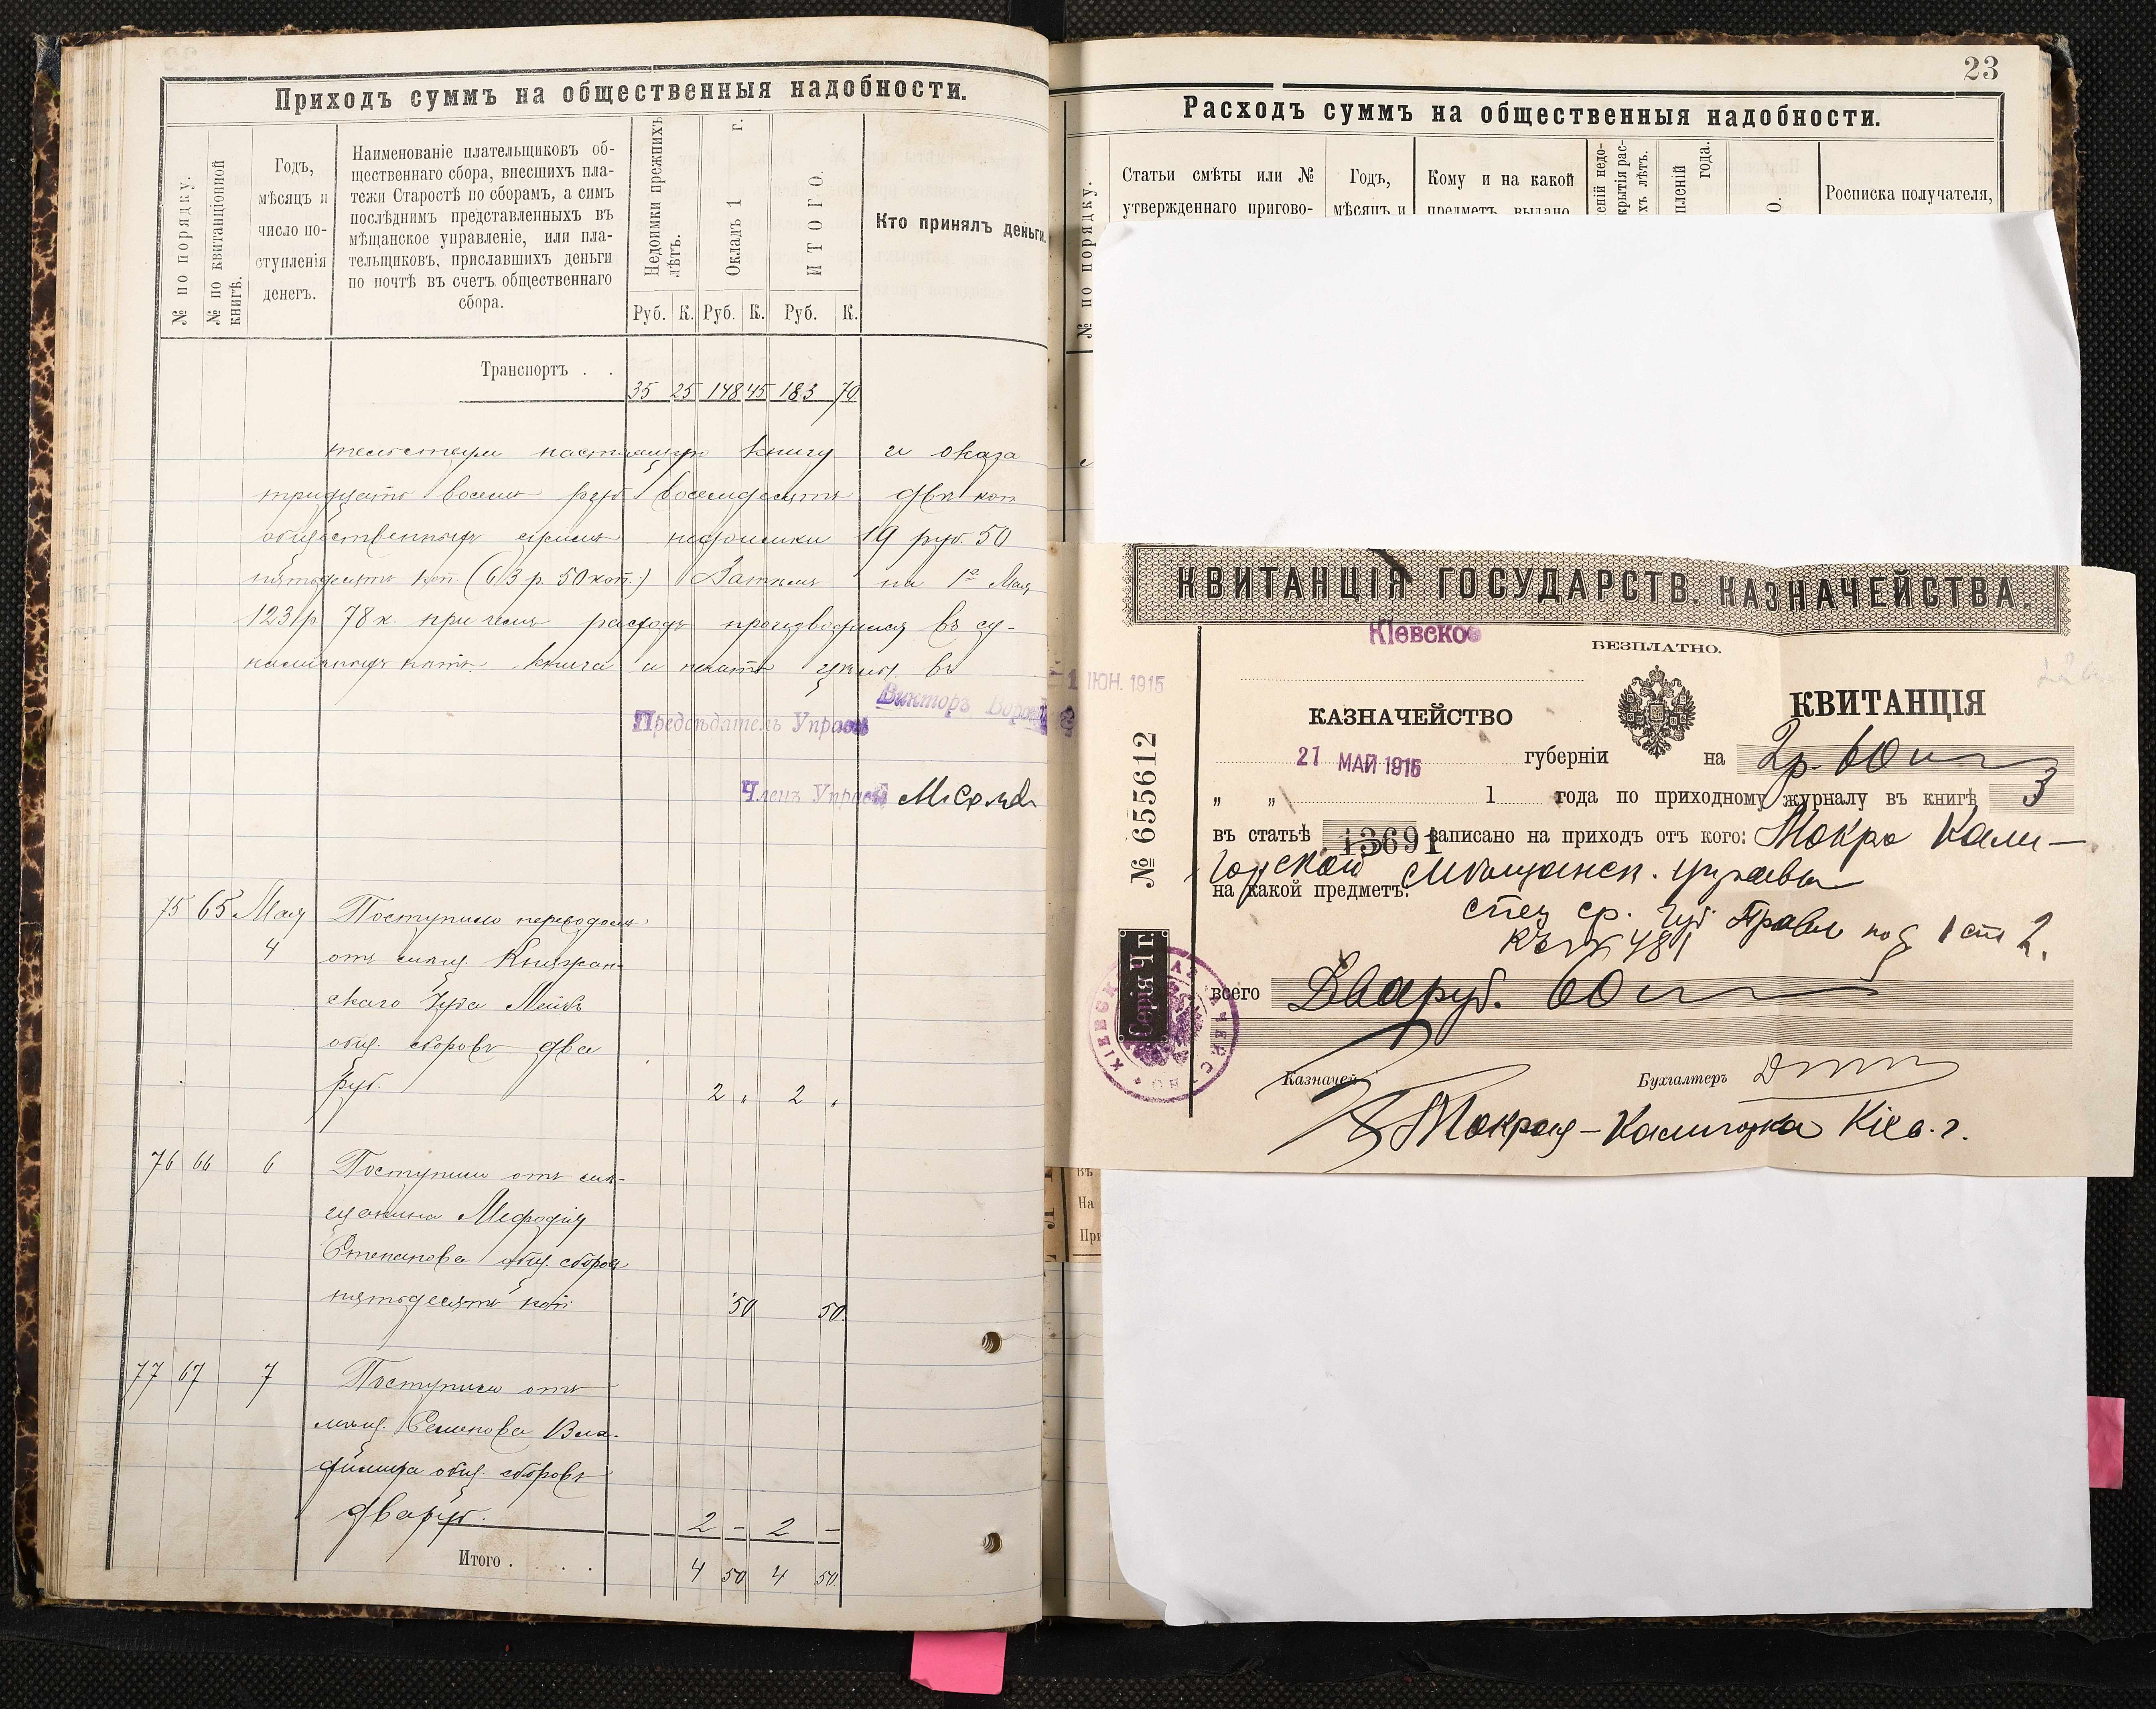 Приходъ суммъ на общественныя надобности.
№ по порядку.
№ по квитанціонной
книгѣ.
Годъ,
мѣсяцъ и
число по-
ступленія
денегъ.
Наименованіе плательщиковъ об-
щественнаго сбора, внесшихъ пла-
тежи Старостѣ по сборамъ, а симъ
послѣднимъ представленныхъ въ
мѣщанское управленіе, или пла-
тельщиковъ, приславшихъ деньги
по почтѣ въ счетъ общественнаго
сбора.
Недоимки прежнихъ
лѣтъ.
Окладъ 1 г.
ИТОГО.
Кто принялъ деньги.
Руб. К. Руб. К. Руб. К.
Транспортъ . .
35 25 148 45 183 70
книгу и оказа
тридцать восемь руб. восемдесятъ двѣ коп
недоимки 19 руб. 50
пятьдесятъ коп. (63 р. 50 коп.) Затемъ на 1е Мая
123 р 78 к. при чемъ расходъ производился въ су-
книга и печать цѣлы. въ
Викторъ
Предсѣдатель Управы
Членъ Управы
75 65 Мая Поступило переводомъ
4 отъ мѣщ.
скаго
общ. сборовъ два
руб. 2 „ 2 „
76 66 6 Поступило отъ мѣ-
щанина Мефодія
Степанова общ. сборовъ
пятьдесятъ коп. 50 50.
77 67 7 Поступило отъ
мѣщ. Семенова Вла-
димира общ. сборовъ
два руб. 2 – 2 –
Итого . . . . 4 50 4 50.
23
Расходъ суммъ на общественныя надобности.
№ по порядку.
Статьи смѣты или №
утвержденнаго пригово-
Годъ,
мѣсяцъ и
Кому и на какой
предметъ выдано
еній недо-
крытія рас-
хъ лѣтъ.
пленій
года.
О.
Росписка получателя,
ІЮН. 1915
КВИТАНЦІЯ ГОСУДАРСТВ. КАЗНАЧЕЙСТВА.
Кіевское
БЕЗПЛАТНО.
КАЗНАЧЕЙСТВО
КВИТАНЦІЯ
21 МАЙ 1915
губерніи
на 2 р. 60 к
„ „ 1 года по приходному журналу въ книгѣ 3
въ статьѣ 13691 записано на приходъ отъ кого: Мокро Кали-
горской Мѣщанск. управы
на какой предметъ:
спец ср. Губ. Правл по § 1 ст 2.
481
всего Два руб. 60 к
Казначей
Бухгалтеръ
Мокрая-Калигорка Кіев. г.
№ 655612
Серія Ч г.
въ
На
При